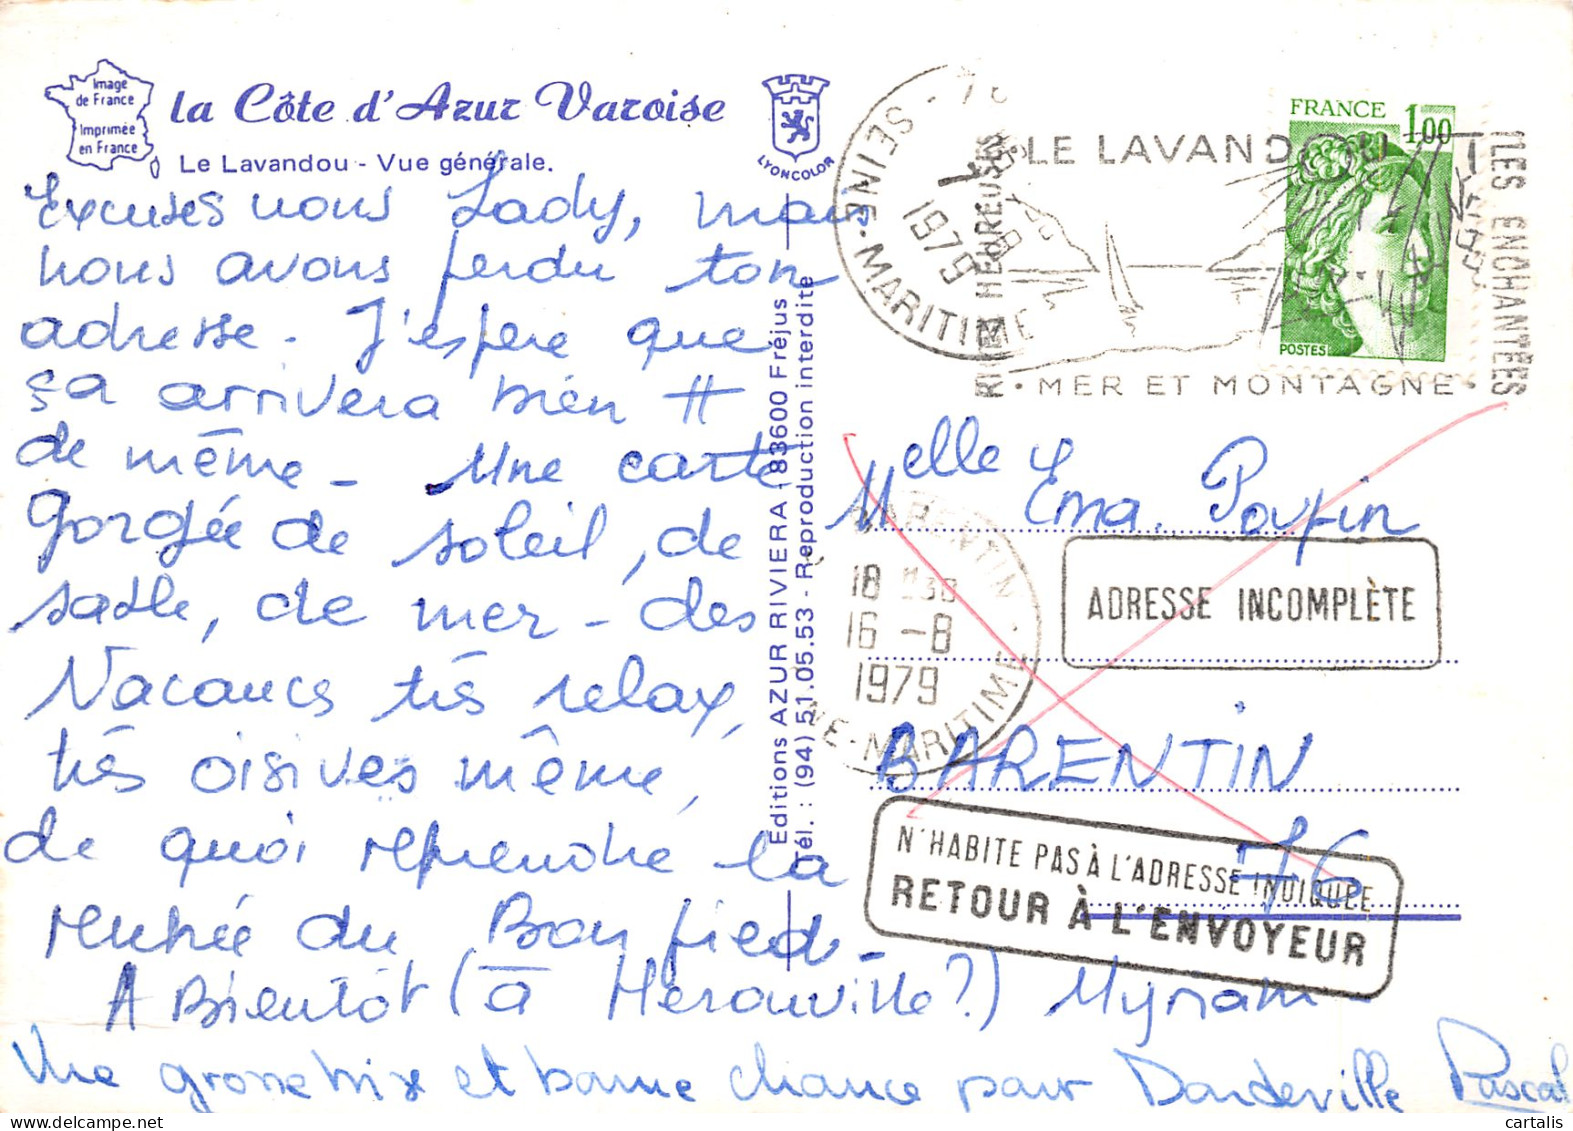 Image
de France
Imprimée
en France
la Côte d'Azur Varoise
Le Lavandou - Vue générale.
LYONCOLOR
Excuses nous Lady, mais
nous avons perdu ton
adresse. J'espère que
ça arrivera bien
de même - Une carte
gorgée de soleil, de
sable, de mer - des
Vacances très relax,
très oisives même,
de quoi reprendre la
rentrée du Bon pied -
A Bientôt (à Hérouville?) Myriam -
Une grosse bix et bonne chance pour Dondeville Pascal
Editions AZUR RIVIERA 83600 Fréjus
Tél. : (94) 51.05.53 - Reproduction interdite
FRANCE 1,00
POSTES
SEINE-MARITIME
1979
LE LAVANDOU
MER ET MONTAGNE
ILES ENCHANTÉES
Melle Ema. Poupin
ADRESSE INCOMPLÈTE
BARENTIN
18 H30
16 -8
1979
NE-MARITIME
BARENTIN
76
N'HABITE PAS À L'ADRESSE INDIQUÉE
RETOUR À L'ENVOYEUR
cartalis